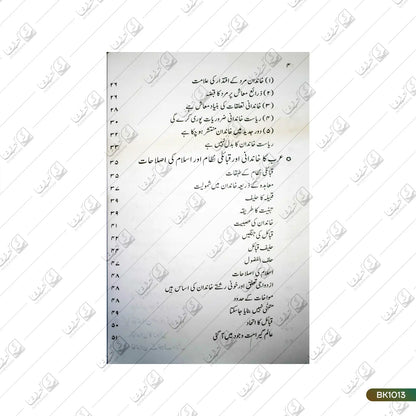 ۴
(۱) خاندان مرد کے اقتدار کی علامت ۲۶
(۲) ذرائع معاش پر مرد کا قبضہ ۲۶
(۳) خاندانی تعلقات کی بنیاد معاش ہے ۲۸
(۴) ریاست خاندانی ضروریات پوری کرے گی ۳۰
(۵) دور جدید میں خاندان منتشر ہو چکا ہے ۳۲
ریاست خاندان کا بدل نہیں ہے ۳۳
عرب کا خاندانی اور قبائلی نظام اور اسلام کی اصلاحات ۳۵
قبائلی نظام کے طبقات ۳۵
معاہدہ کے ذریعہ خاندان میں شمولیت ۳۷
قبیلہ کا حلیف ۳۹
تبنیت کا طریقہ ۳۹
خاندان کی عصبیت ۴۱
قبائل کی جنگیں ۴۲
حلیف قبائل ۴۴
حلف الفضول ۴۷
اسلام کی اصلاحات ۴۸
ازدواجی تعلق اور خونی رشتے خاندان کی اساس ہیں ۴۸
مواخات کے حدود ۴۸
متبنّیٰ نہیں بنایا جاسکتا ۴۹
قبائل کا اتحاد ۵۰
عالم گیر امت وجود میں آ گئی ۵۱
BK1013